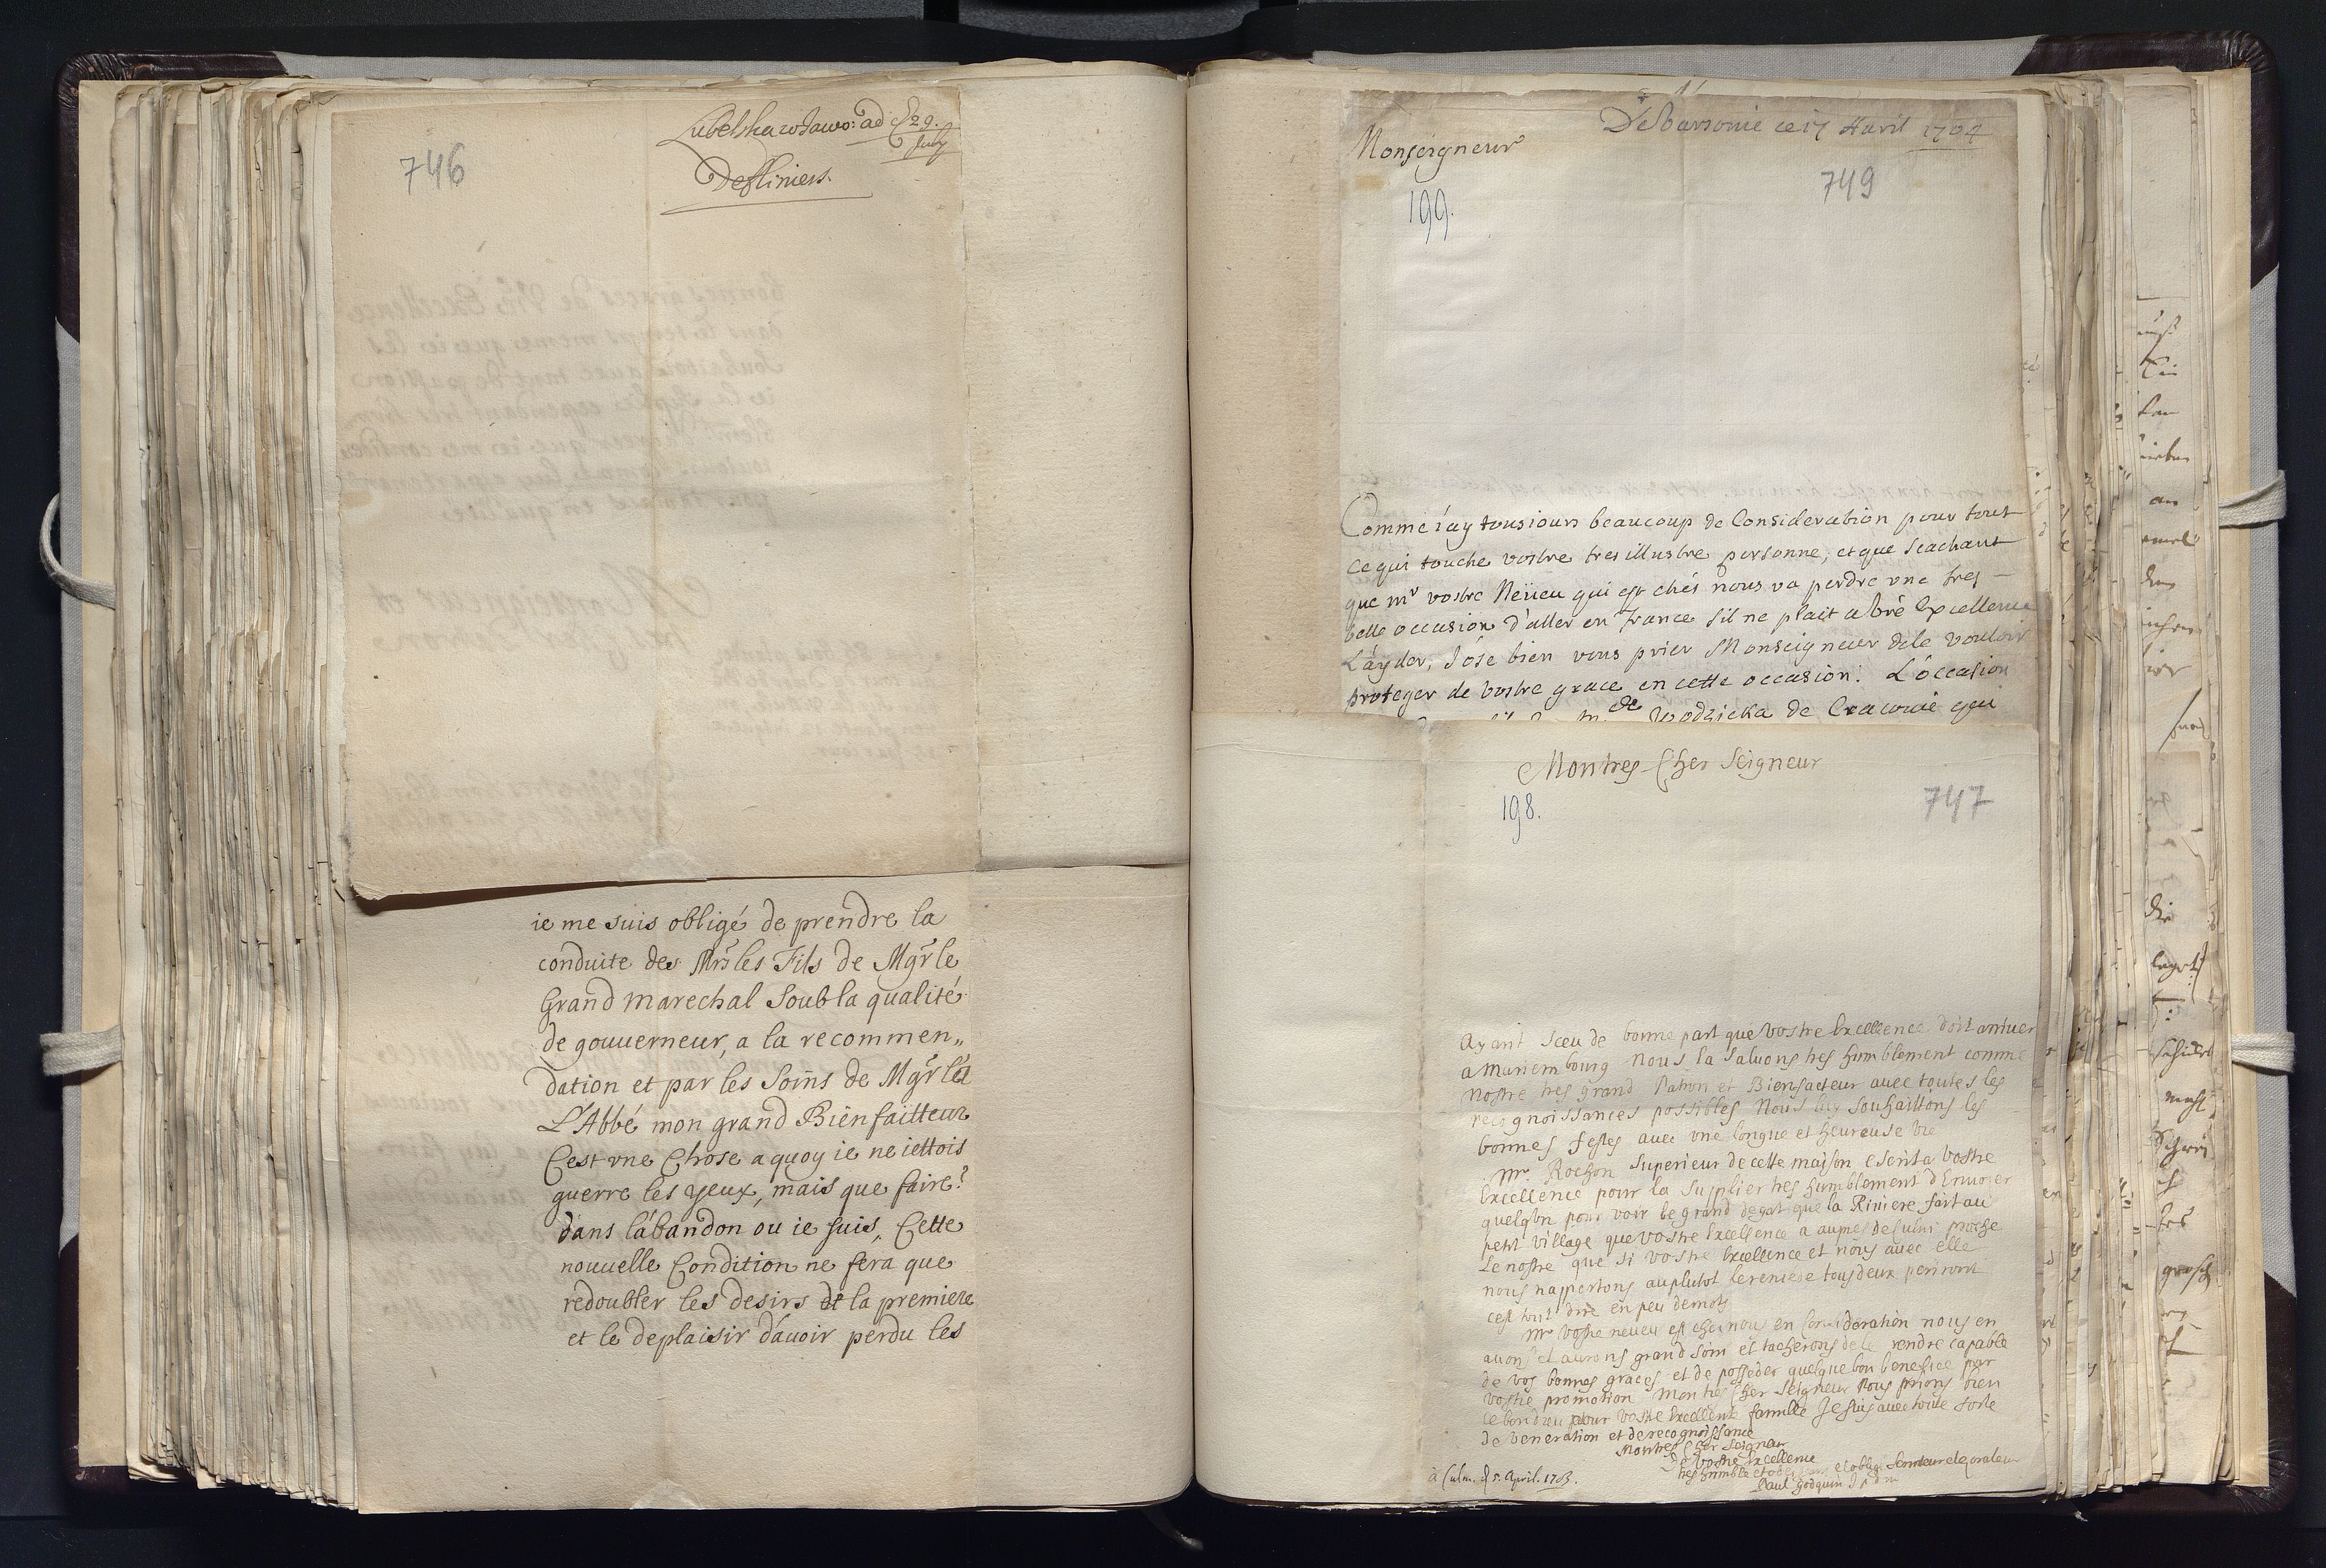 746
ad 29.
July
Desliniers.
ie me suis obligé de prendre la
conduite des Mrs les Fils de Mgr le
Grand marechal soub la qualité
de gouuerneur, a la recommen„
dation et par les soins de Mgr
L'Abbé mon grand Bienfaitteur
C'est vne Chose a quoy ie ne iettois
guerre les yeux, mais que faire?
dans l'abandon ou ie suis, Cette
nouuelle Condition ne fera que
redoubler les desirs de la premiere
et le deplaisir d'auoir perdu les
De Varsouie ce 17 Auril 1704
Monseigneur
749
199.
Comme i'ay tousiours beaucoup de Consideration pour tout
ce qui touche vostre tres illustre personne, et que scachant
que mr vostre Neueu qui est chés nous va perdre vne tres
belle occasion d'aller en France s'il ne plait a vre Excellence
L'ayder, i'ose bien vous prier Monseigneur de le vouloir
proteger de vostre grace en cette occasion. L'occasion
mde Wodzicka de Cracouie qui
Mon tres Cher Seigneur
198.
747
Ayant sceu de bonne part que vostre Excellence doit arriuer
a Mariembourg nous la saluons tres humblement comme
nostre tres grand Patron et Bienfacteur auec toutes les
recognoissances possibles Nous luy souhaittons les
bonnes festes auec vne longue et heureuse vie
Mr. Rochon superieur de cette maison escrit a vostre
Excellence pour la supplier tres humblement d'Enuoier
quelqvn pour voir le grand degat que la Riuiere fait au
petit village que vostre Excellence a aupres de Culm proche
Le nostre que si vostre Excellence et nous auec elle
nous n'apportons au plutot le remede tous deux periront
cest tout dire en peu de mots
Mr vostre neueu est chez nous en consideration nous en
auons et aurons grand soin et tacherons de le rendre capable
de vos bonnes graces et de posseder quelque bon benefice par
vostre promotion Mon tres Cher Seigneur Nous prions bien
le bon dieu pour vostre Excellente famille Je suis auec toute sorte
de veneration et de recognoissance
Mon tres Cher Seigneur
De vostre Excellence
tres humble et obligé seruiteur et orateur
Paul Godquin
à Culm. d 5. April. 1703.